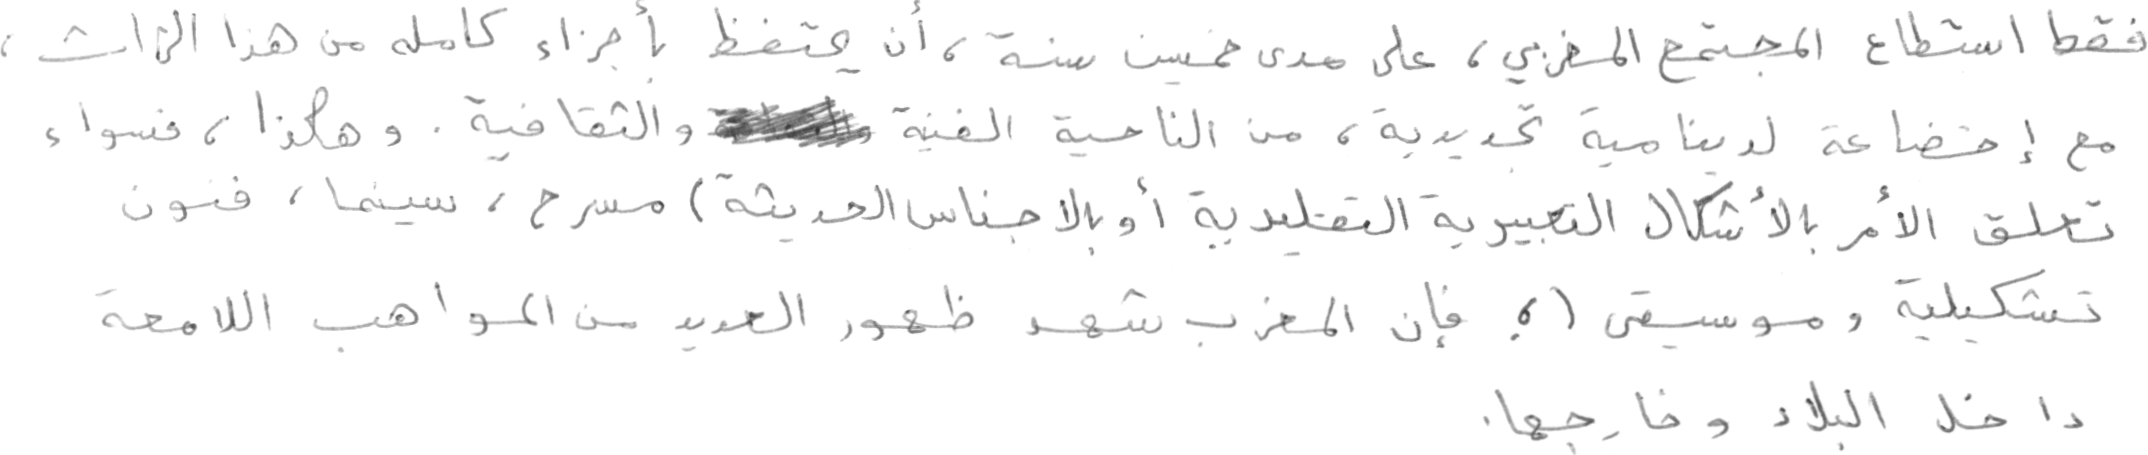 فقط استطاع المجتمع المغربي، على مدى خمسين سنة، أن يحتفظ بأجزاء كامله من هذا التراث،
مع إخضاعة لدينامية تجديدية، من الناحية الفنية والثقافية. وهكذا، فسواء
تعلق الأمر بالأشكال التعبيرية التقليدية أو بالاجناس الحديثة) مسرح، سينما، فنون
تشكيلية وموسيقى (، فإن المغرب شهد ظهور العديد من المواهب اللامعة
داخل البلاد وخارجها.